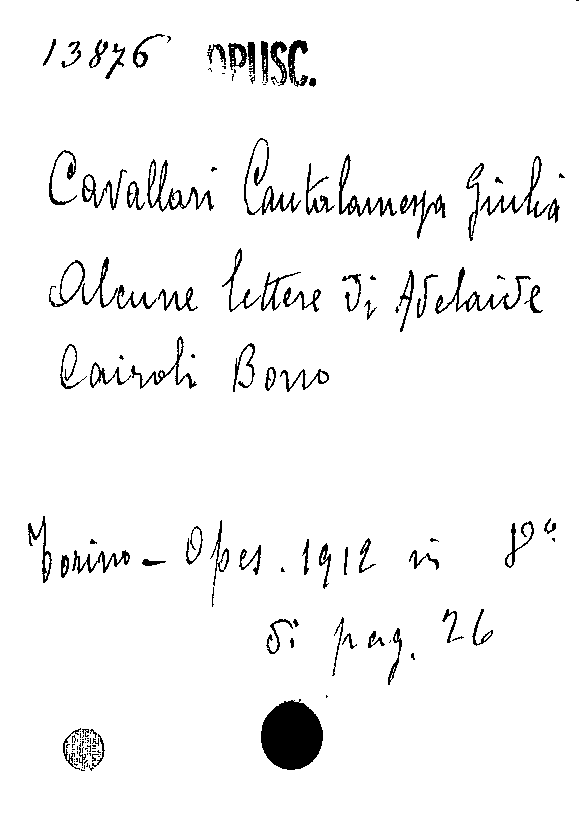 13876 OPUSC.
Cavallari Cantalamessa Giulia
Alcune lettere di Adelaide
Cairoli Bono
Torino - Opes. 1912 in 8º.
di pag. 26